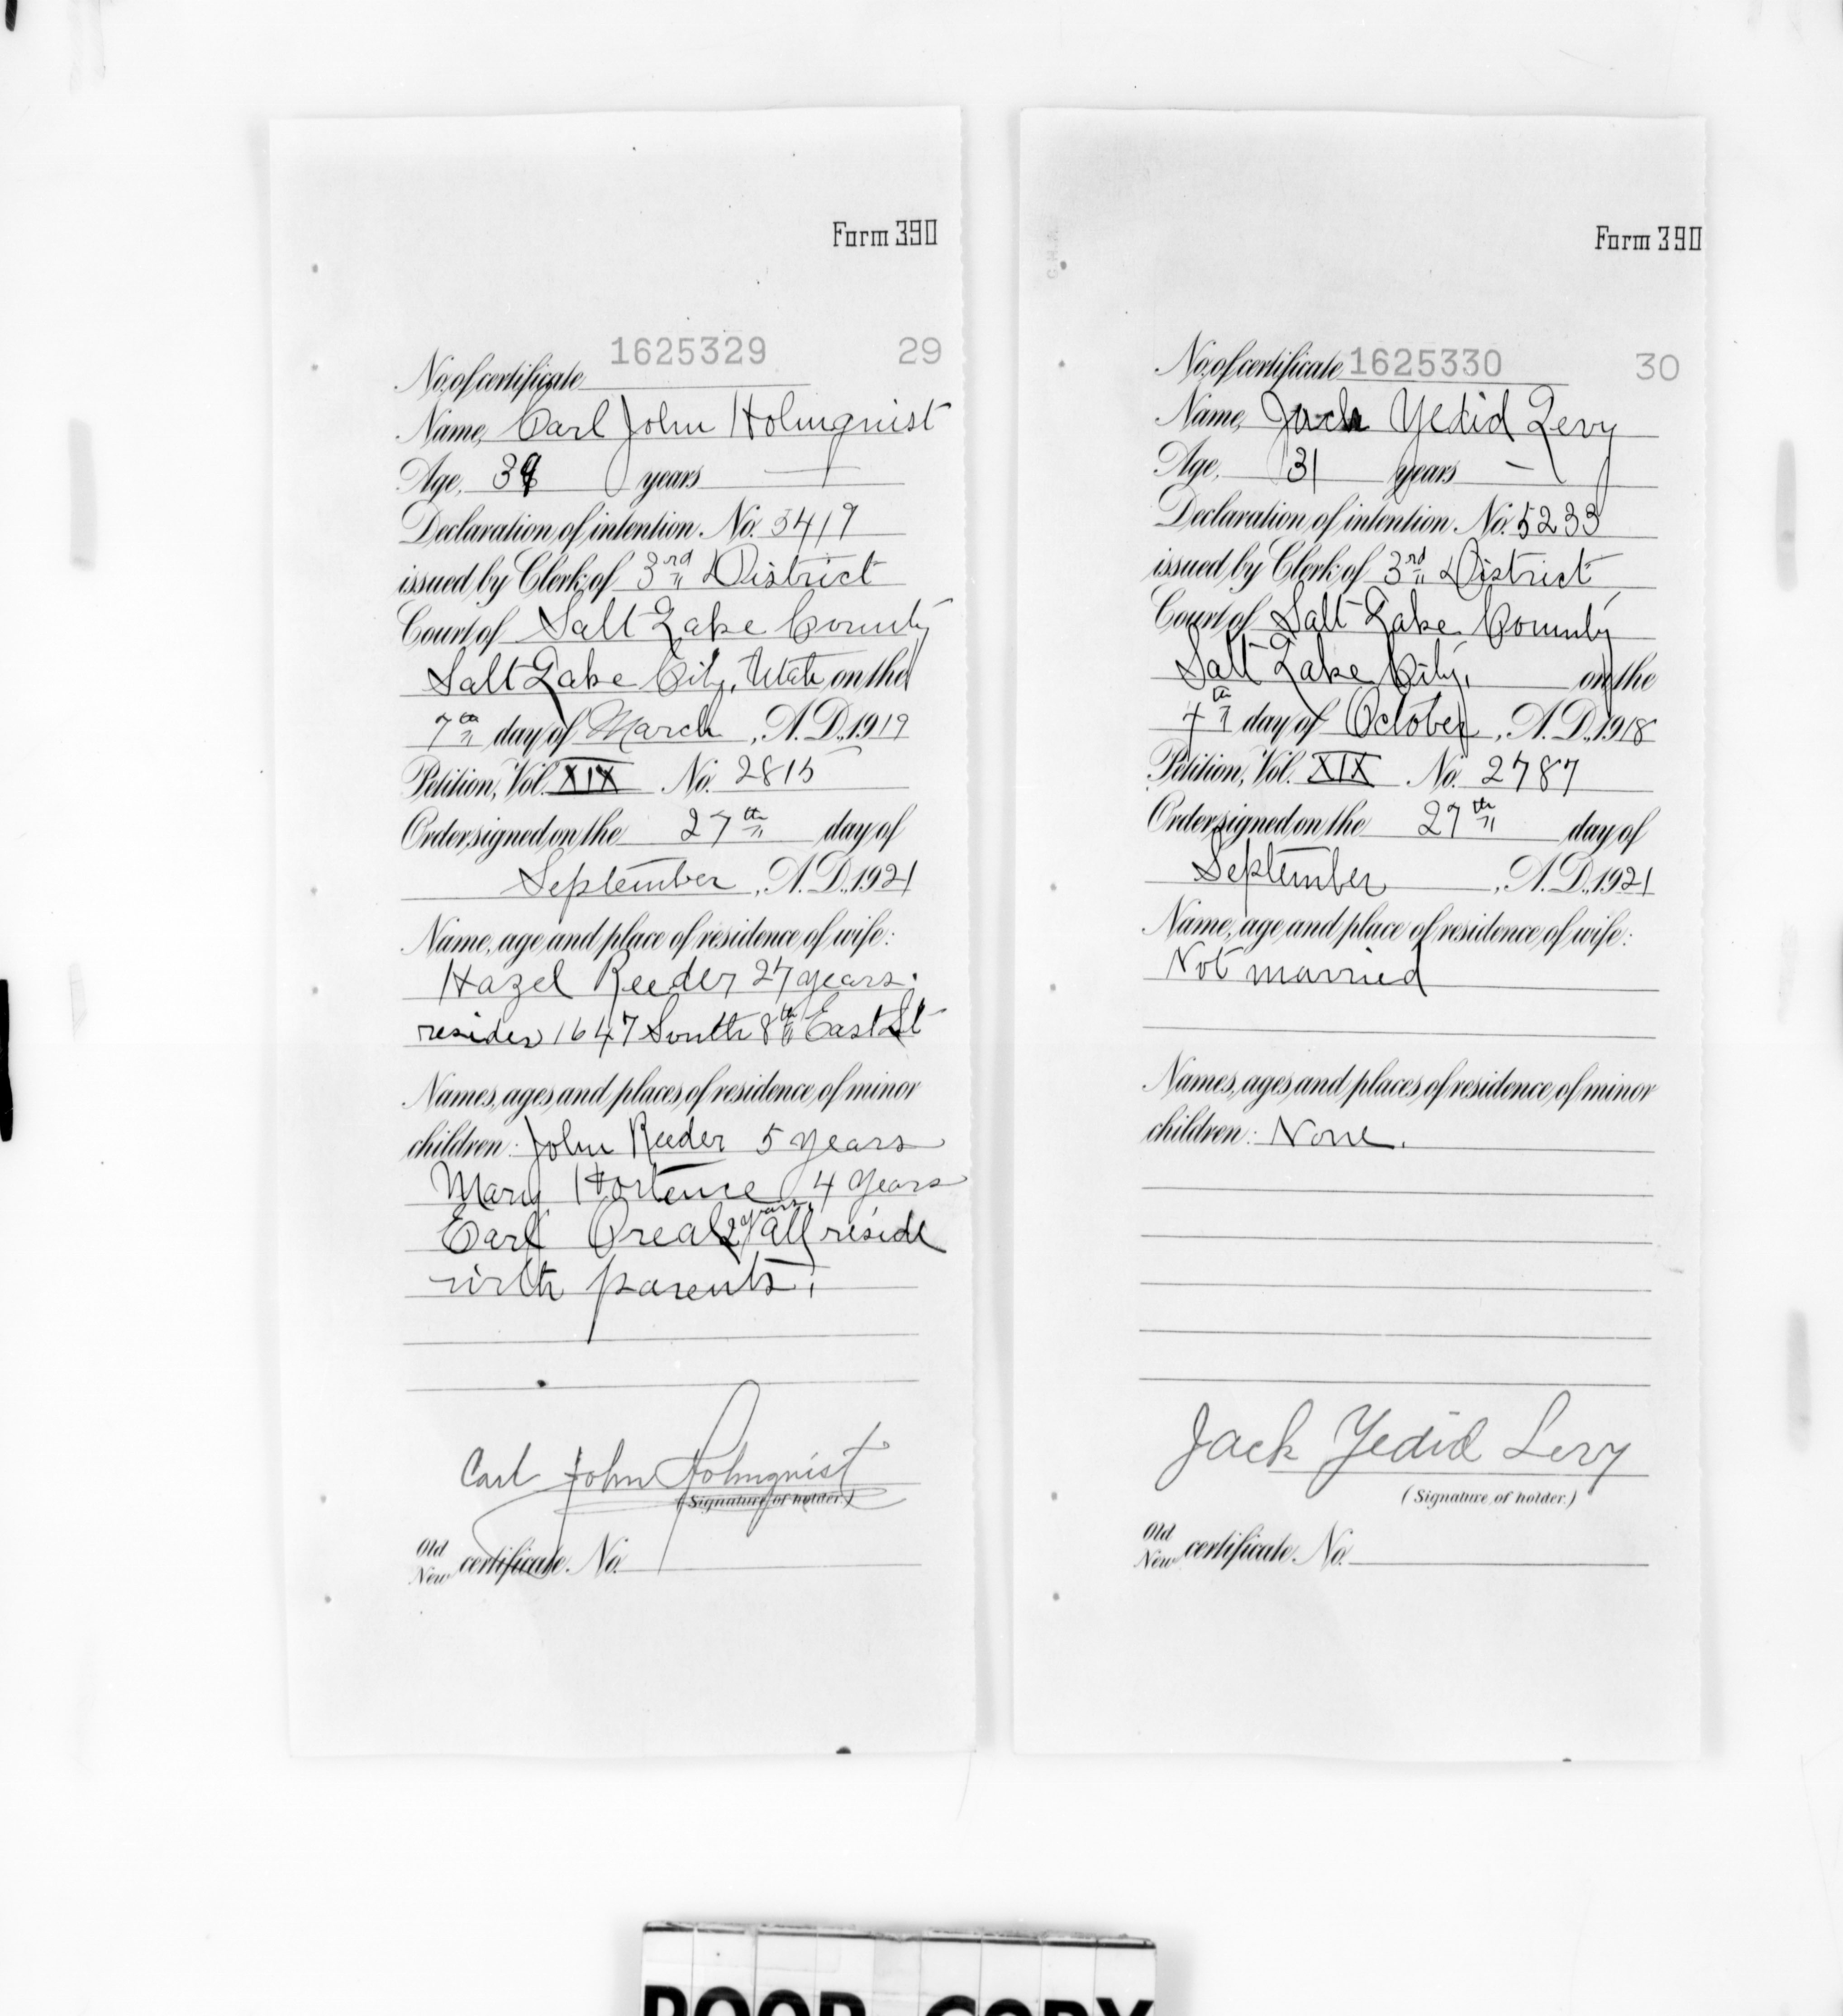 Form 390
1625329 29
No. of certificate
Name, Carl John Holmquist
Age, years —
Declaration of intention. No. 3419
issued by Clerk of 3rd District
Court of Salt Lake County
Salt Lake City, Utah on the
7th day of March, A.D. 1919
Petition, Vol. XIX No. 2815
Order signed on the 27th day of
September, A.D. 1921
Name, age and place of residence of wife:
Hazel Reeder 27 years.
resides 1647 South 8th East St
Names, ages and places of residence of minor
children: John Reeder 5 years
Mary Hortense 4 years
Earl 2 years, all reside
with parents.
Carl John Holmquist
(Signature of holder.)
Old
New certificate. No.
Form 390
No. of certificate 1625330 30
Name, Jack Yedid Levy
Age, 31 years —
Declaration of intention. No. 5233
issued by Clerk of 3rd District
Court of Salt Lake County
Salt Lake City, on the
4th day of October, A.D. 1918
Petition, Vol. XIX No. 2787
Order signed on the 27th day of
September, A.D. 1921
Name, age and place of residence of wife:
Not married
Names, ages and places of residence of minor
children: None.
Jack Yedid Levy
(Signature of holder.)
Old
New certificate. No.
POOR COPY